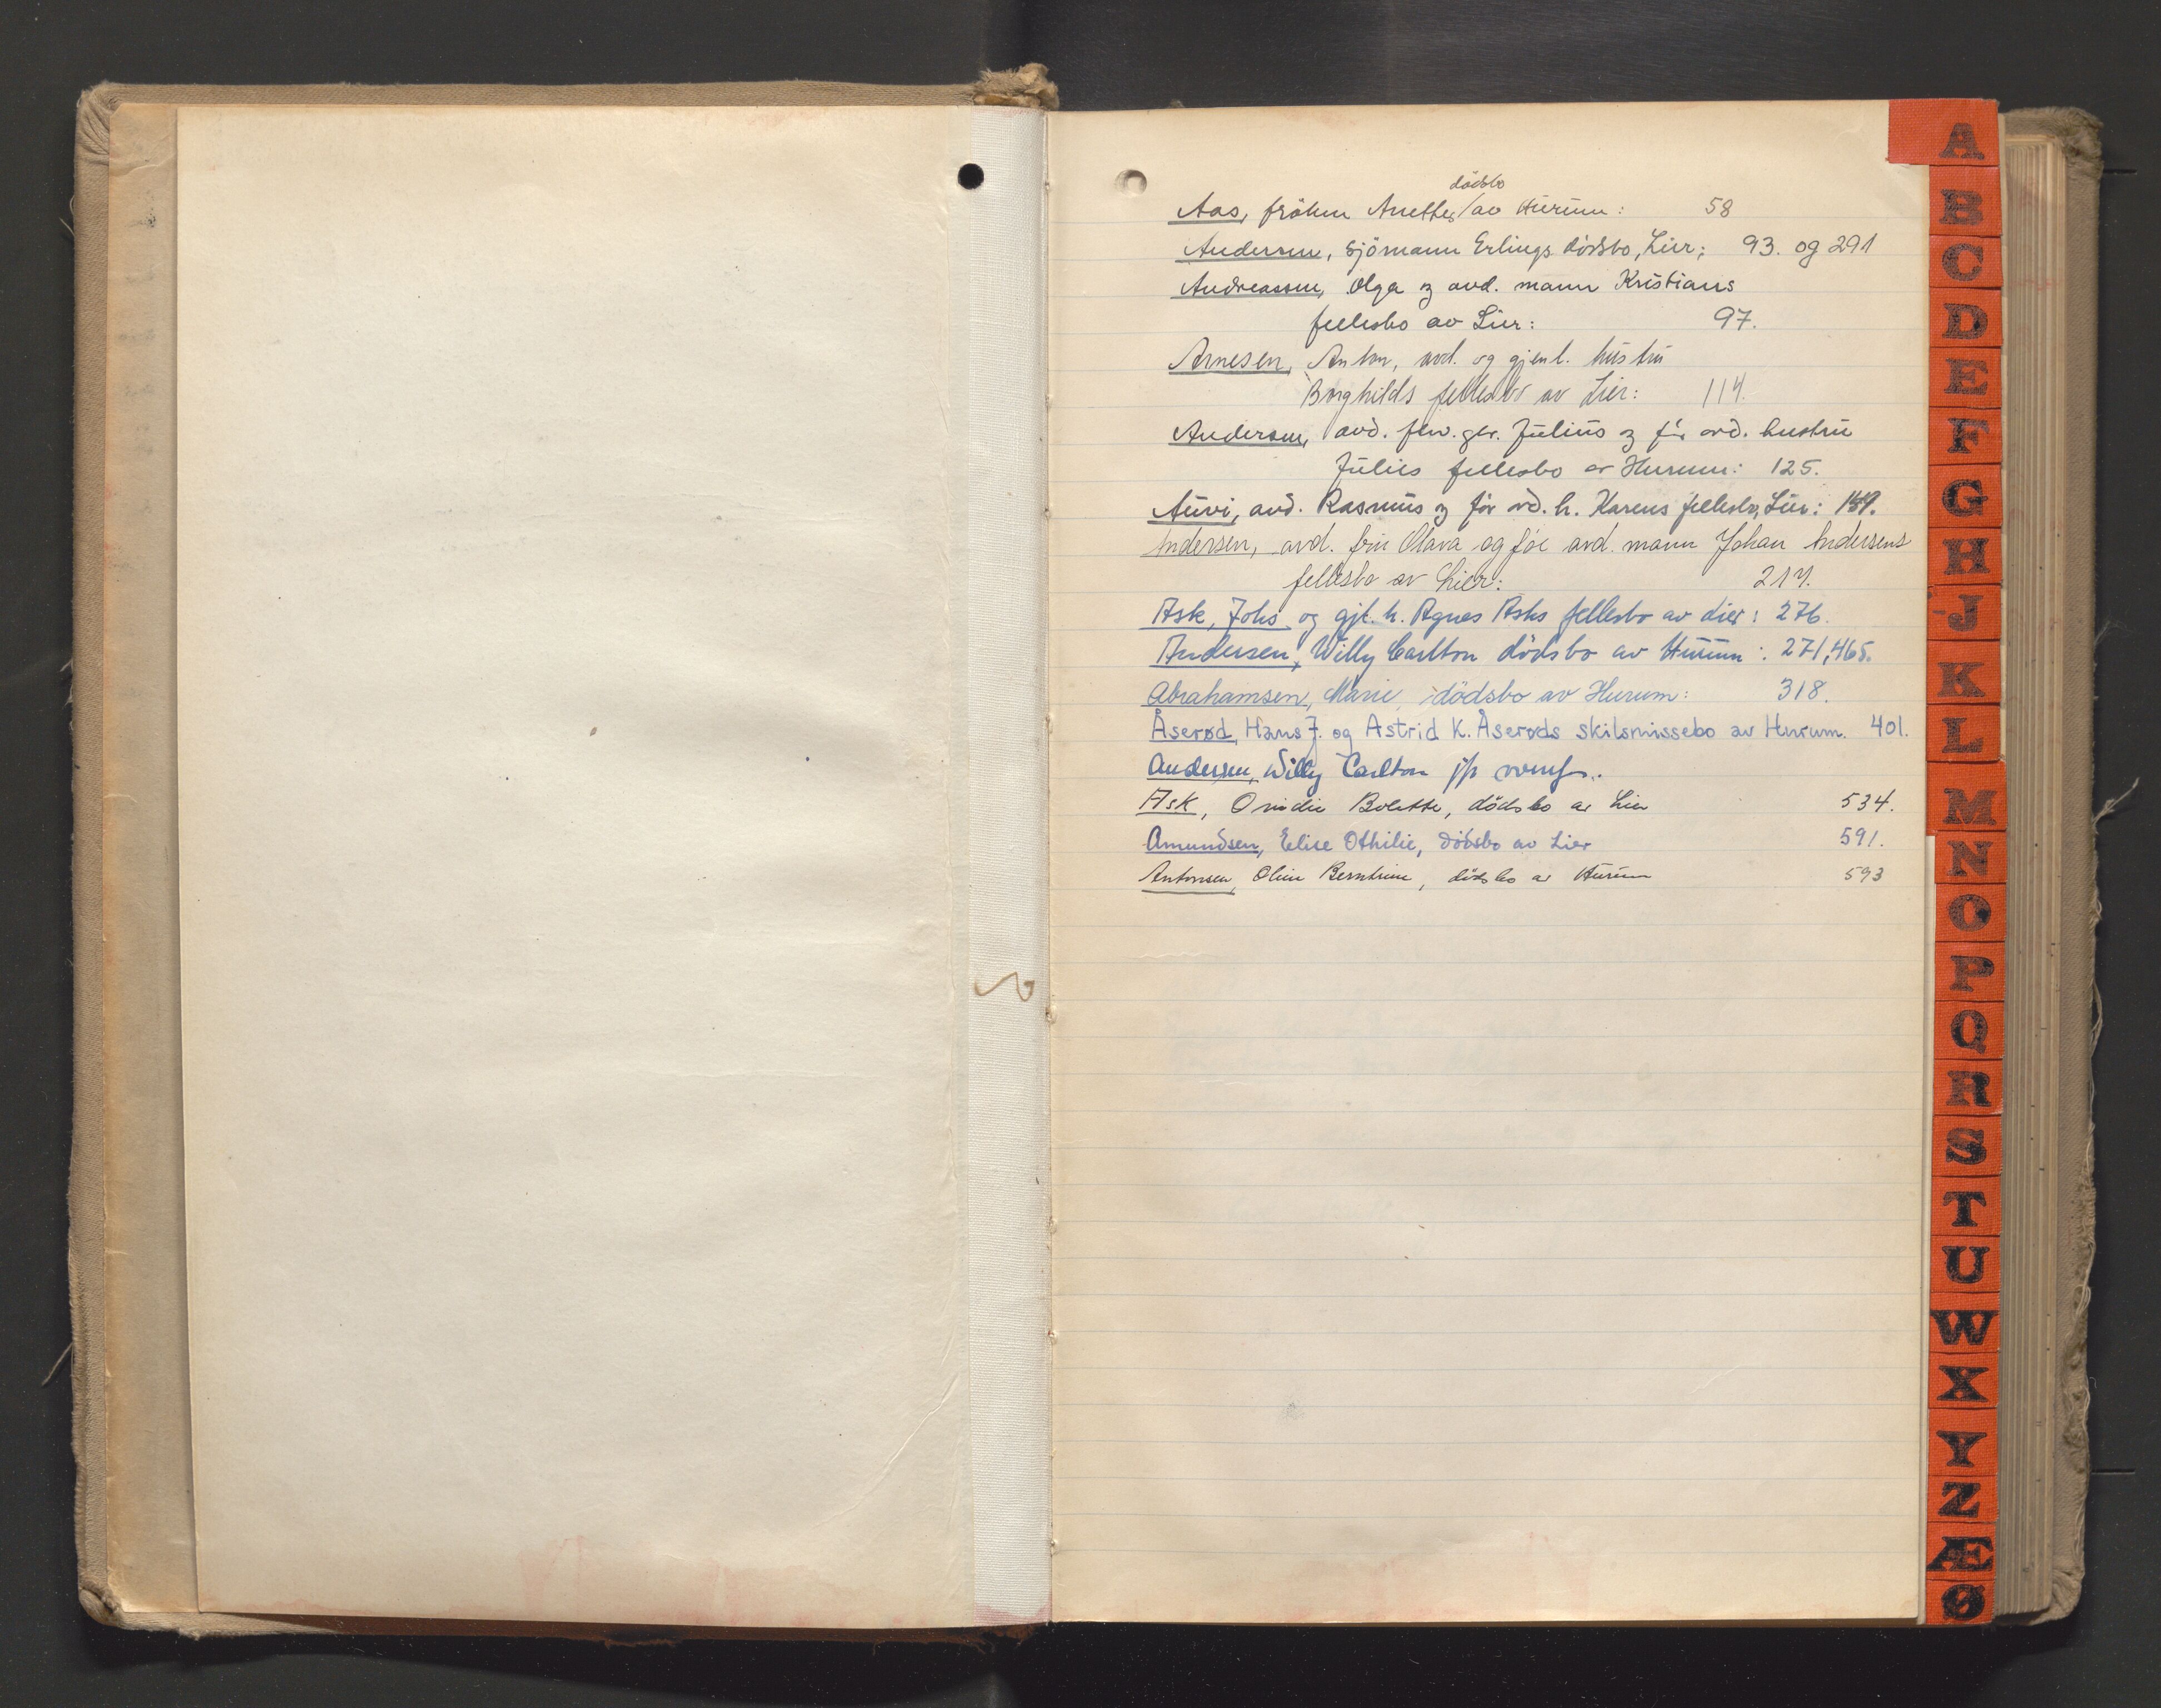 dödsbo
Aas, fröken Anettes / av Hurum: 58
Andersen, Sjömann Erlings dödsbo, Lier: 93. og 291
Andreassen, Olga og avd. mann Kristians
fellesbo av Lier: 97.
Arnesen, Anton, avd. og gjenl. hustru
Borghilds fellesbo av Lier: 114.
Andersen, avd. Julius og før avd. hustru
Julies fellesbo av Hurum: 125.
Auvi, avd. Rasmus og før avd. h. Karens fellesbo, Lier:
Andersen, avd. fru Olava og før avd. mann Johan Andersens
fellesbo av Lier: 217.
Ask, Johs og gjl. h. Agnes Asks fellesbo av Lier: 276.
Andersen, Willy Carlton dödsbo av Hurum: 271, 465.
Abrahamsen, Marie, dödsbo av Hurum: 318.
Åserød, Hans J. og Astrid K. Åserøds skilsmissebo av Hurum. 401.
Andersen, Willy Carlton
Ask, Bolette, dödsbo av Lier 534.
Amundsen, Elise Othilie, dödsbo av Lier 591.
Antonsen, Oline Berntine, dödsbo av Hurum 593
A
B
C
D
E
F
G
H
J
K
L
M
N
O
P
Q
R
S
T
U
W
X
Y
Z
Æ
Ø